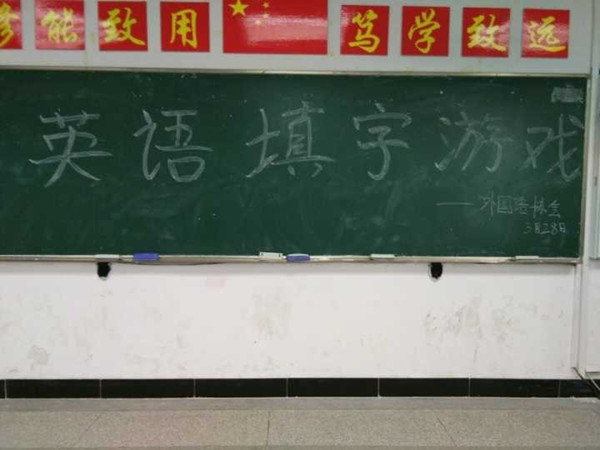 修能致用
笃学致远
英语填字游戏
——外国语协会
3月28日